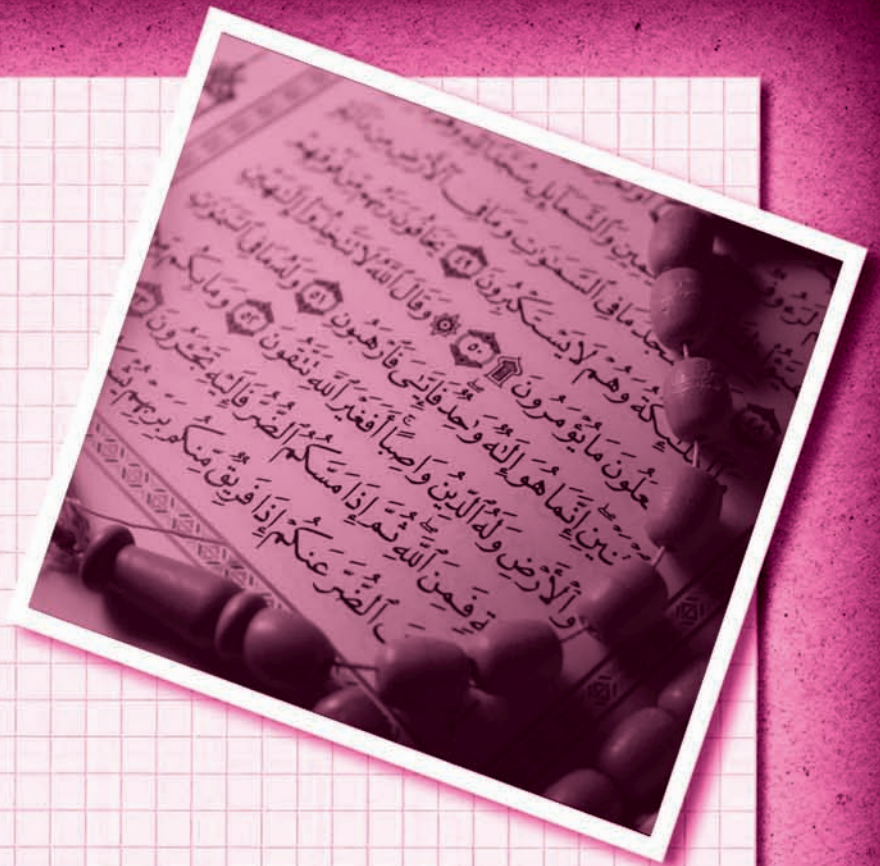 وَٱلشَّمَآئِلِ سُجَّدًا لِّلَّهِ
مَا فِى ٱلسَّمَٰوَٰتِ وَمَا فِى ٱلْأَرْضِ مِن دَآبَّةٍ
وَهُمْ لَا يَسْتَكْبِرُونَ ٤٩ يَخَافُونَ رَبَّهُم مِّن فَوْقِهِمْ
مَا يُؤْمَرُونَ ۩ ٥٠ ۞ وَقَالَ ٱللَّهُ لَا تَتَّخِذُوٓا۟ إِلَٰهَيْنِ
إِنَّمَا هُوَ إِلَٰهٌ وَٰحِدٌ فَإِيَّٰىَ فَٱرْهَبُونِ ٥١ وَلَهُۥ مَا فِى ٱلسَّمَٰوَٰتِ
وَٱلْأَرْضِ وَلَهُ ٱلدِّينُ وَاصِبًا أَفَغَيْرَ ٱللَّهِ تَتَّقُونَ ٥٢ وَمَا بِكُم
فَمِنَ ٱللَّهِ ثُمَّ إِذَا مَسَّكُمُ ٱلضُّرُّ فَإِلَيْهِ تَجْـَٔرُونَ
ٱلضُّرَّ عَنكُمْ إِذَا فَرِيقٌ مِّنكُم بِرَبِّهِمْ